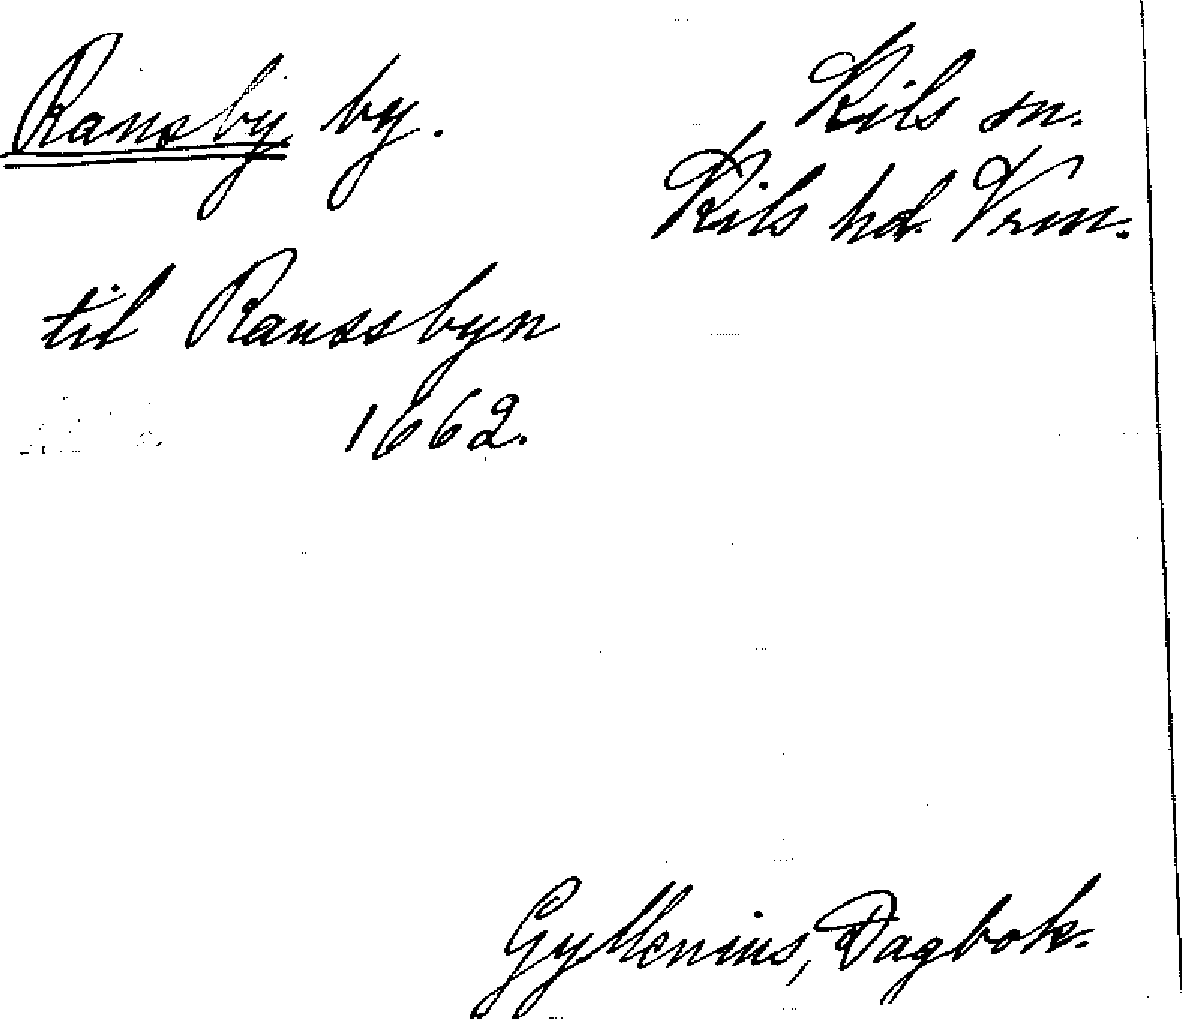 Ransby by.
Kils sn.
Kils hd. Vrm.
til Ranssbyn
1662.
Gyllenius, Dagbok.